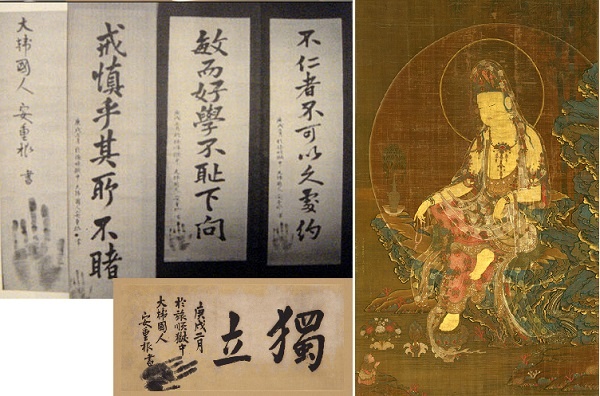 不仁者不可以久處約
敏而好學不恥下問
戒愼乎其所不睹
大韓國人 安重根 書
獨立
庚戌二月
於旅順獄中
大韓國人
安重根書